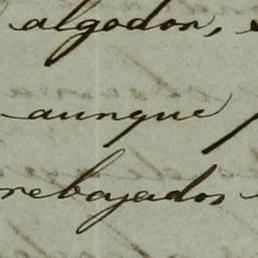 algodon,
aunque
rebajados